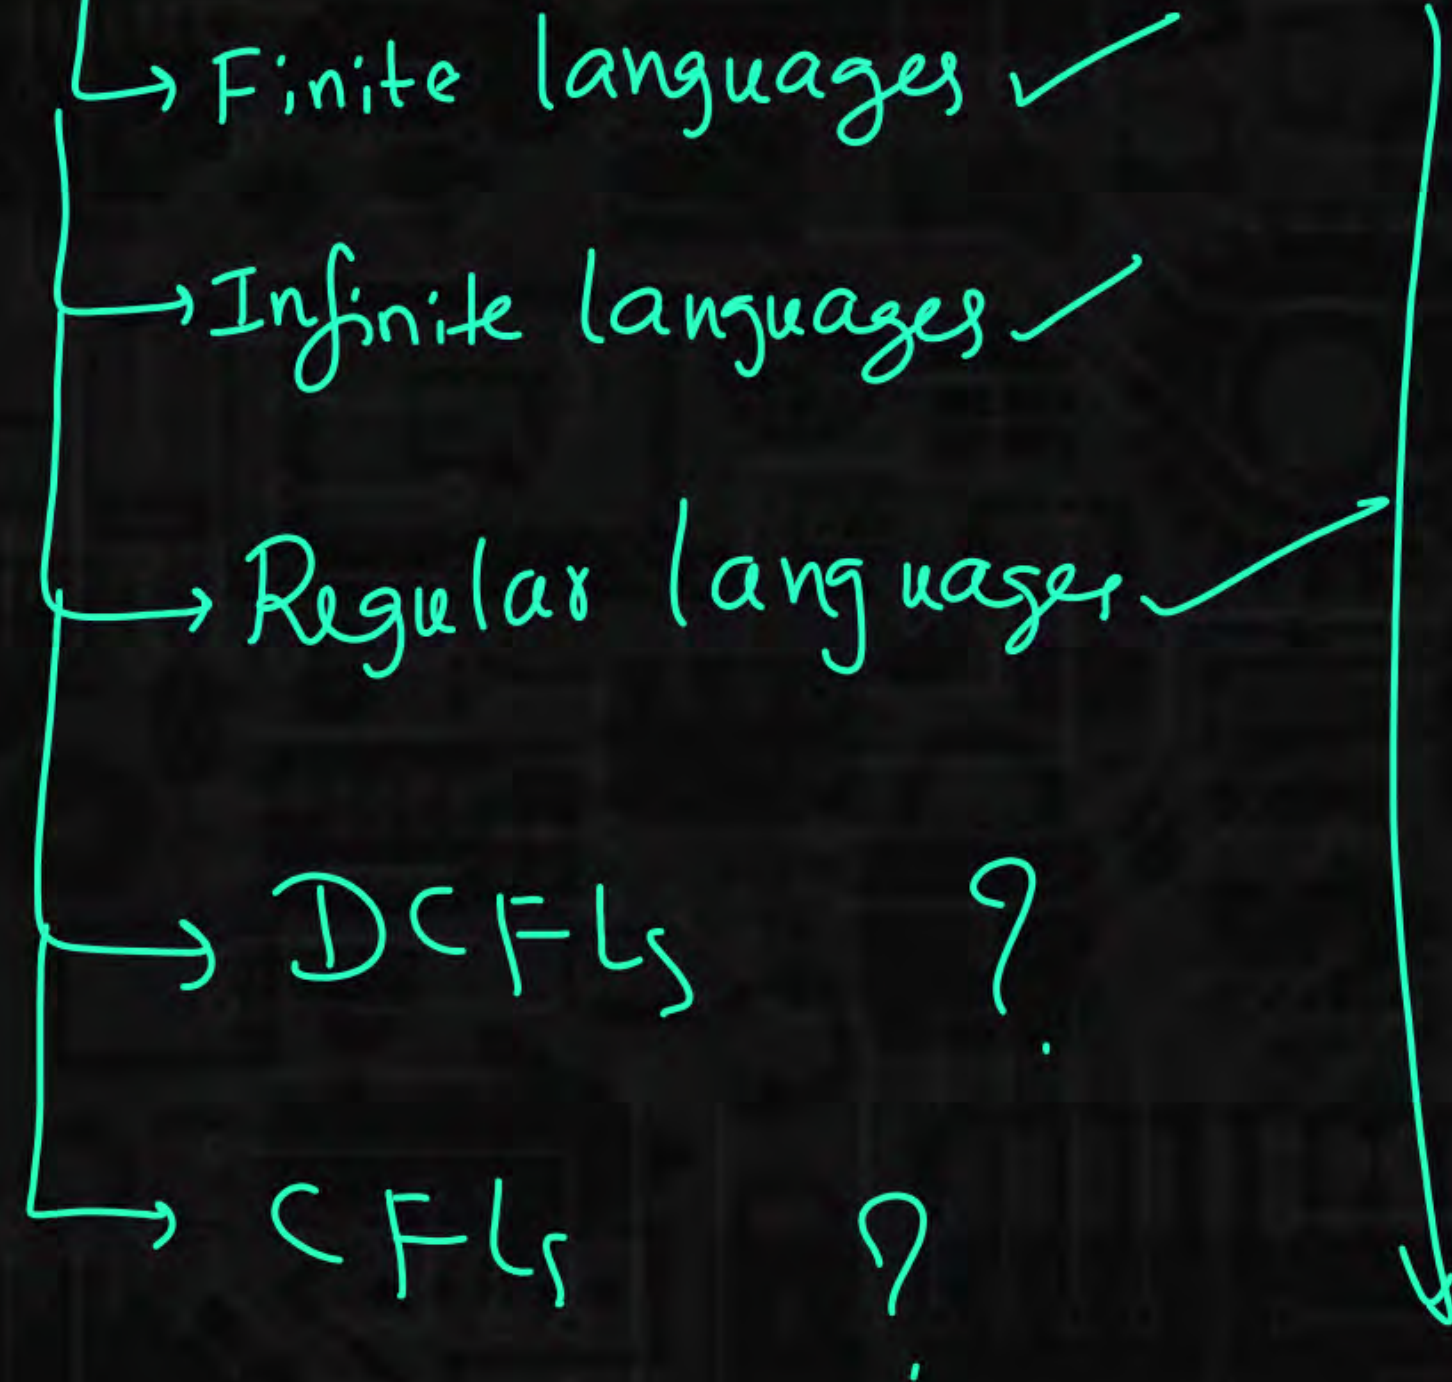 → Finite languages ✓
→ Infinite languages ✓
→ Regular languages ✓
→ DCFLs ?
→ CFLs ?